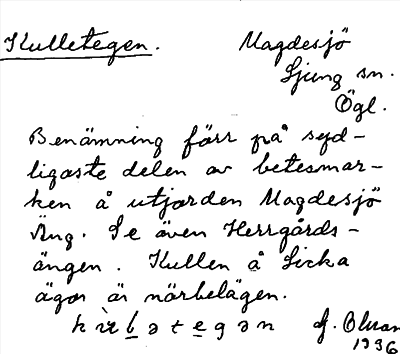 Kulletegen. Magdesjö
Ljung sn.
Ögl.
Benämning förr på syd-
ligaste delen av betesmar-
ken å utjorden Magdesjö
Äng. Se även Herrgårds-
ängen. Kullen å Licka
ägor är närbelägen.